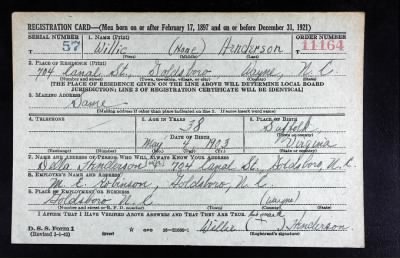 REGISTRATION CARD—(Men born on or after February 17, 1897 and on or before December 31, 1921)
SERIAL NUMBER
1. NAME (Print)
ORDER NUMBER
T 57
Willie (None) Henderson
T 11164
(First) (Middle) (Last)
2. PLACE OF RESIDENCE (Print)
704 Canal St., Goldsboro Wayne N.C.
(Number and street) (Town, township, village, or city) (County) (State)
[THE PLACE OF RESIDENCE GIVEN ON THE LINE ABOVE WILL DETERMINE LOCAL BOARD
JURISDICTION; LINE 2 OF REGISTRATION CERTIFICATE WILL BE IDENTICAL]
3. MAILING ADDRESS
Same
[Mailing address if other than place indicated on line 2. If same insert word same]
4. TELEPHONE
5. AGE IN YEARS
6. PLACE OF BIRTH
38
Suffolk
DATE OF BIRTH
(Town or county)
May 4, 1903
Virginia
(Exchange) (Number)
(Mo.) (Day) (Yr.)
(State or country)
7. NAME AND ADDRESS OF PERSON WHO WILL ALWAYS KNOW YOUR ADDRESS
Della Henderson 704 Canal St., Goldsboro, N.C.
8. EMPLOYER'S NAME AND ADDRESS
M. E. Robinson, Goldsboro, N.C.
9. PLACE OF EMPLOYMENT OR BUSINESS
Goldsboro N.C. (Wayne)
(Number and street or R. F. D. number) (Town) (County) (State)
I AFFIRM THAT I HAVE VERIFIED ABOVE ANSWERS AND THAT THEY ARE TRUE.
his mark
D. S. S. Form 1
(Revised 1-1-42)
Willie Henderson
(Registrant's signature)